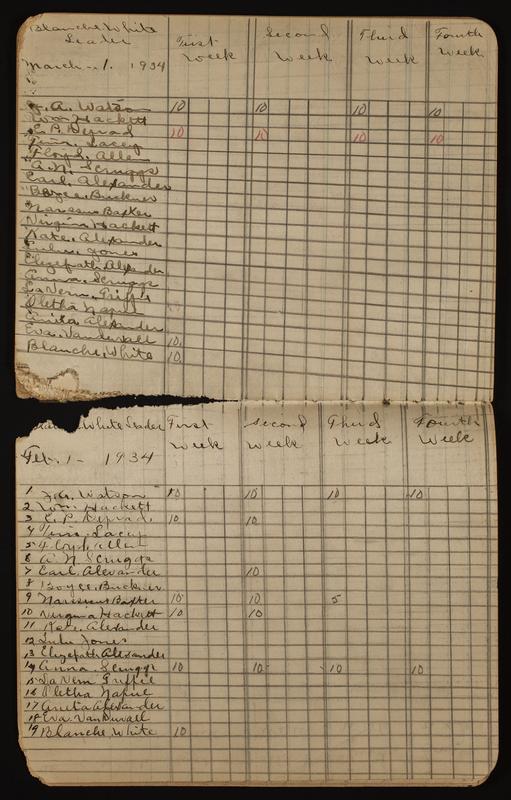 Blanche White
Leader
First Week Second Week Third Week Fourth Week
March - 1. 1934
J. A. Watson 10 10 10 10
Wm Hackett
10 10 10 10
Tim. Lacey
Floyd. Allen
A. N. Scruggs
Carl. Alexander
Boyce. Buckner
Narcssus Baxter
Virginia Hackett
Kate. Alexander
Lula. Jones
Elizepath Alexander
Anna. Scruggs
LaVern. Griffie
Oletha Napue
Anita Alexander
Eva. Vanduvall 10.
Blanche. White 10.
White Leader First Week Second Week Third Week Fourth Week
Feb. 1 - 1934
1 J. A. Watson 10 10 10 10
2 Wm. Hackett
3 10 10
4 Tim. Lacey
5 Floyd. Allen
6 A. N. Scruggs
7 Carl. Alexander 10
8 Boyce. Buckner
9 Narcissus Baxter 10 10 5
10 Virginia Hackett 10 10
11 Kate. Alexander
12 Lula Jones
13 Elizepath Alexander
14 Anna. Scruggs 10 10 10 10
15 LaVern Griffie
16 Oletha Napue
17 Anita Alexander
18 Eva. VanDuvall
19 Blanche. White 10